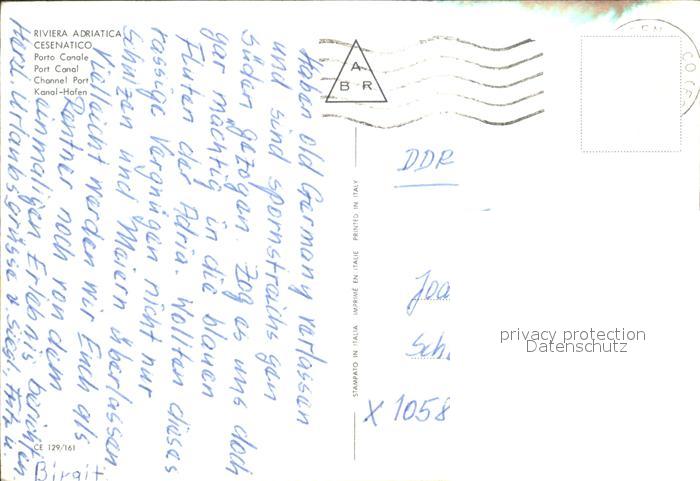 RIVIERA ADRIATICA
CESENATICO
Porto Canale
Port Canal
Channel Port
Kanal-Hafen
Haben old Germany verlassen
und sind spornstreichs gen
Süden gezogen. Zog es uns doch
gar mächtig in die blauen
Fluten der Adria. Wollten dieses
rassige Vergnügen nicht nur
Schulzen und Maiern überlassen
Vielleicht werden wir Euch als
Rentner noch von dem
einmaligen Erlebnis berichten
Herzl. Urlaubsgrüsse v. Siegl, Fritz u.
Birgit
CE 129/161
STAMPATO IN ITALIA IMPRIMÉ EN ITALIE PRINTED IN ITALY
A
B R
DDR
Joa
Sch
X 1058
privacy protection
Datenschutz